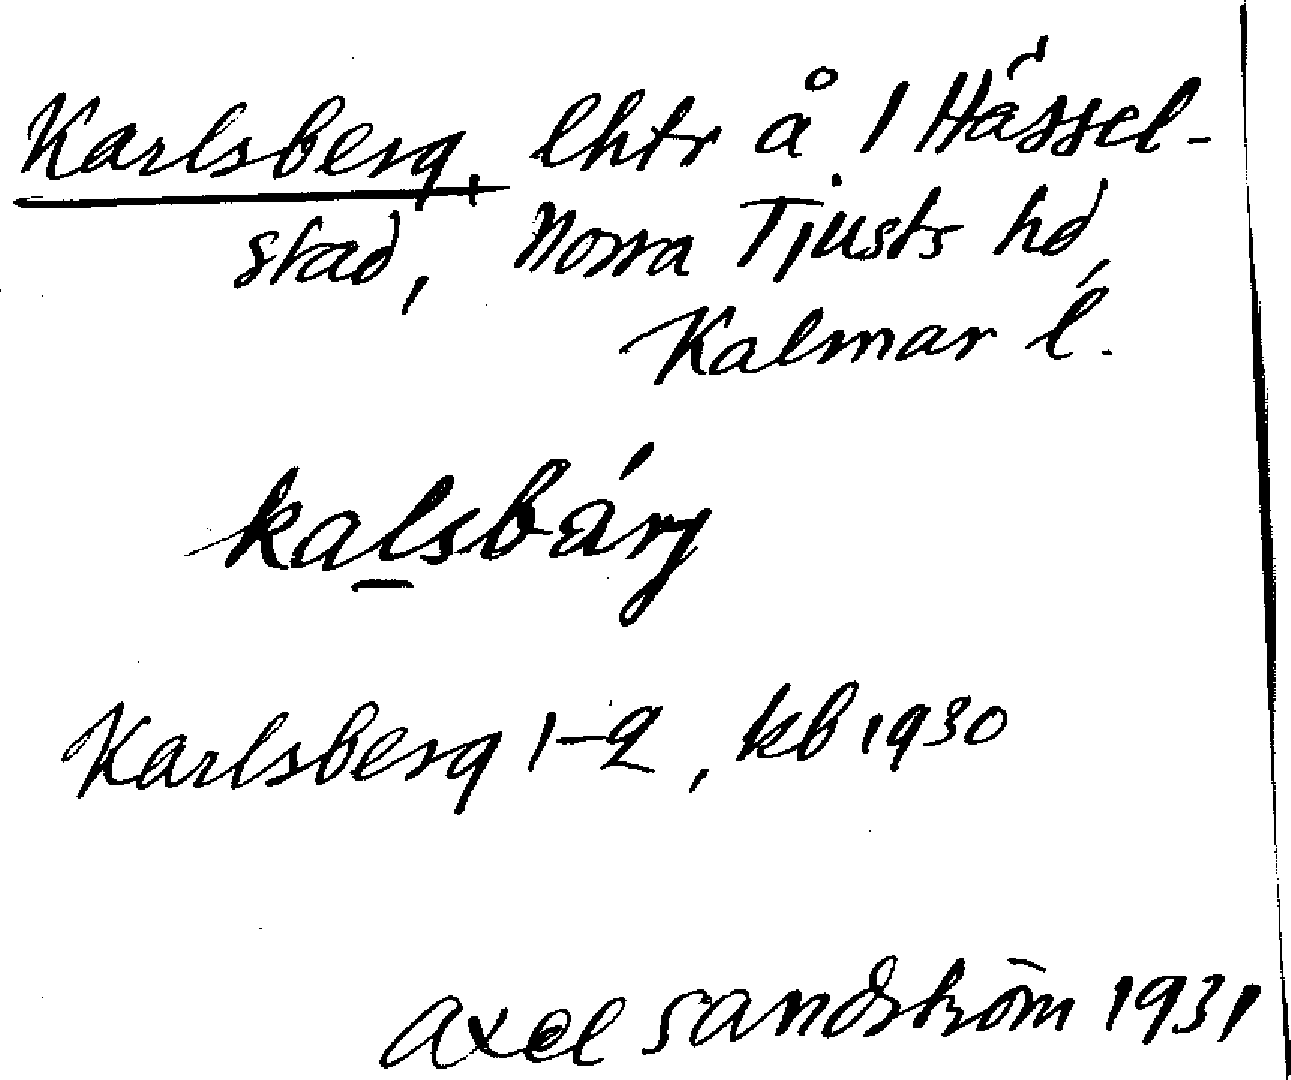 Karlsberg, lhtr å 1 Hässel-
stad, Norra Tjusts hd,
Kalmar l.
kalsbárj
Karlsberg 1-2, kb 1930
Axel Sandström 1931